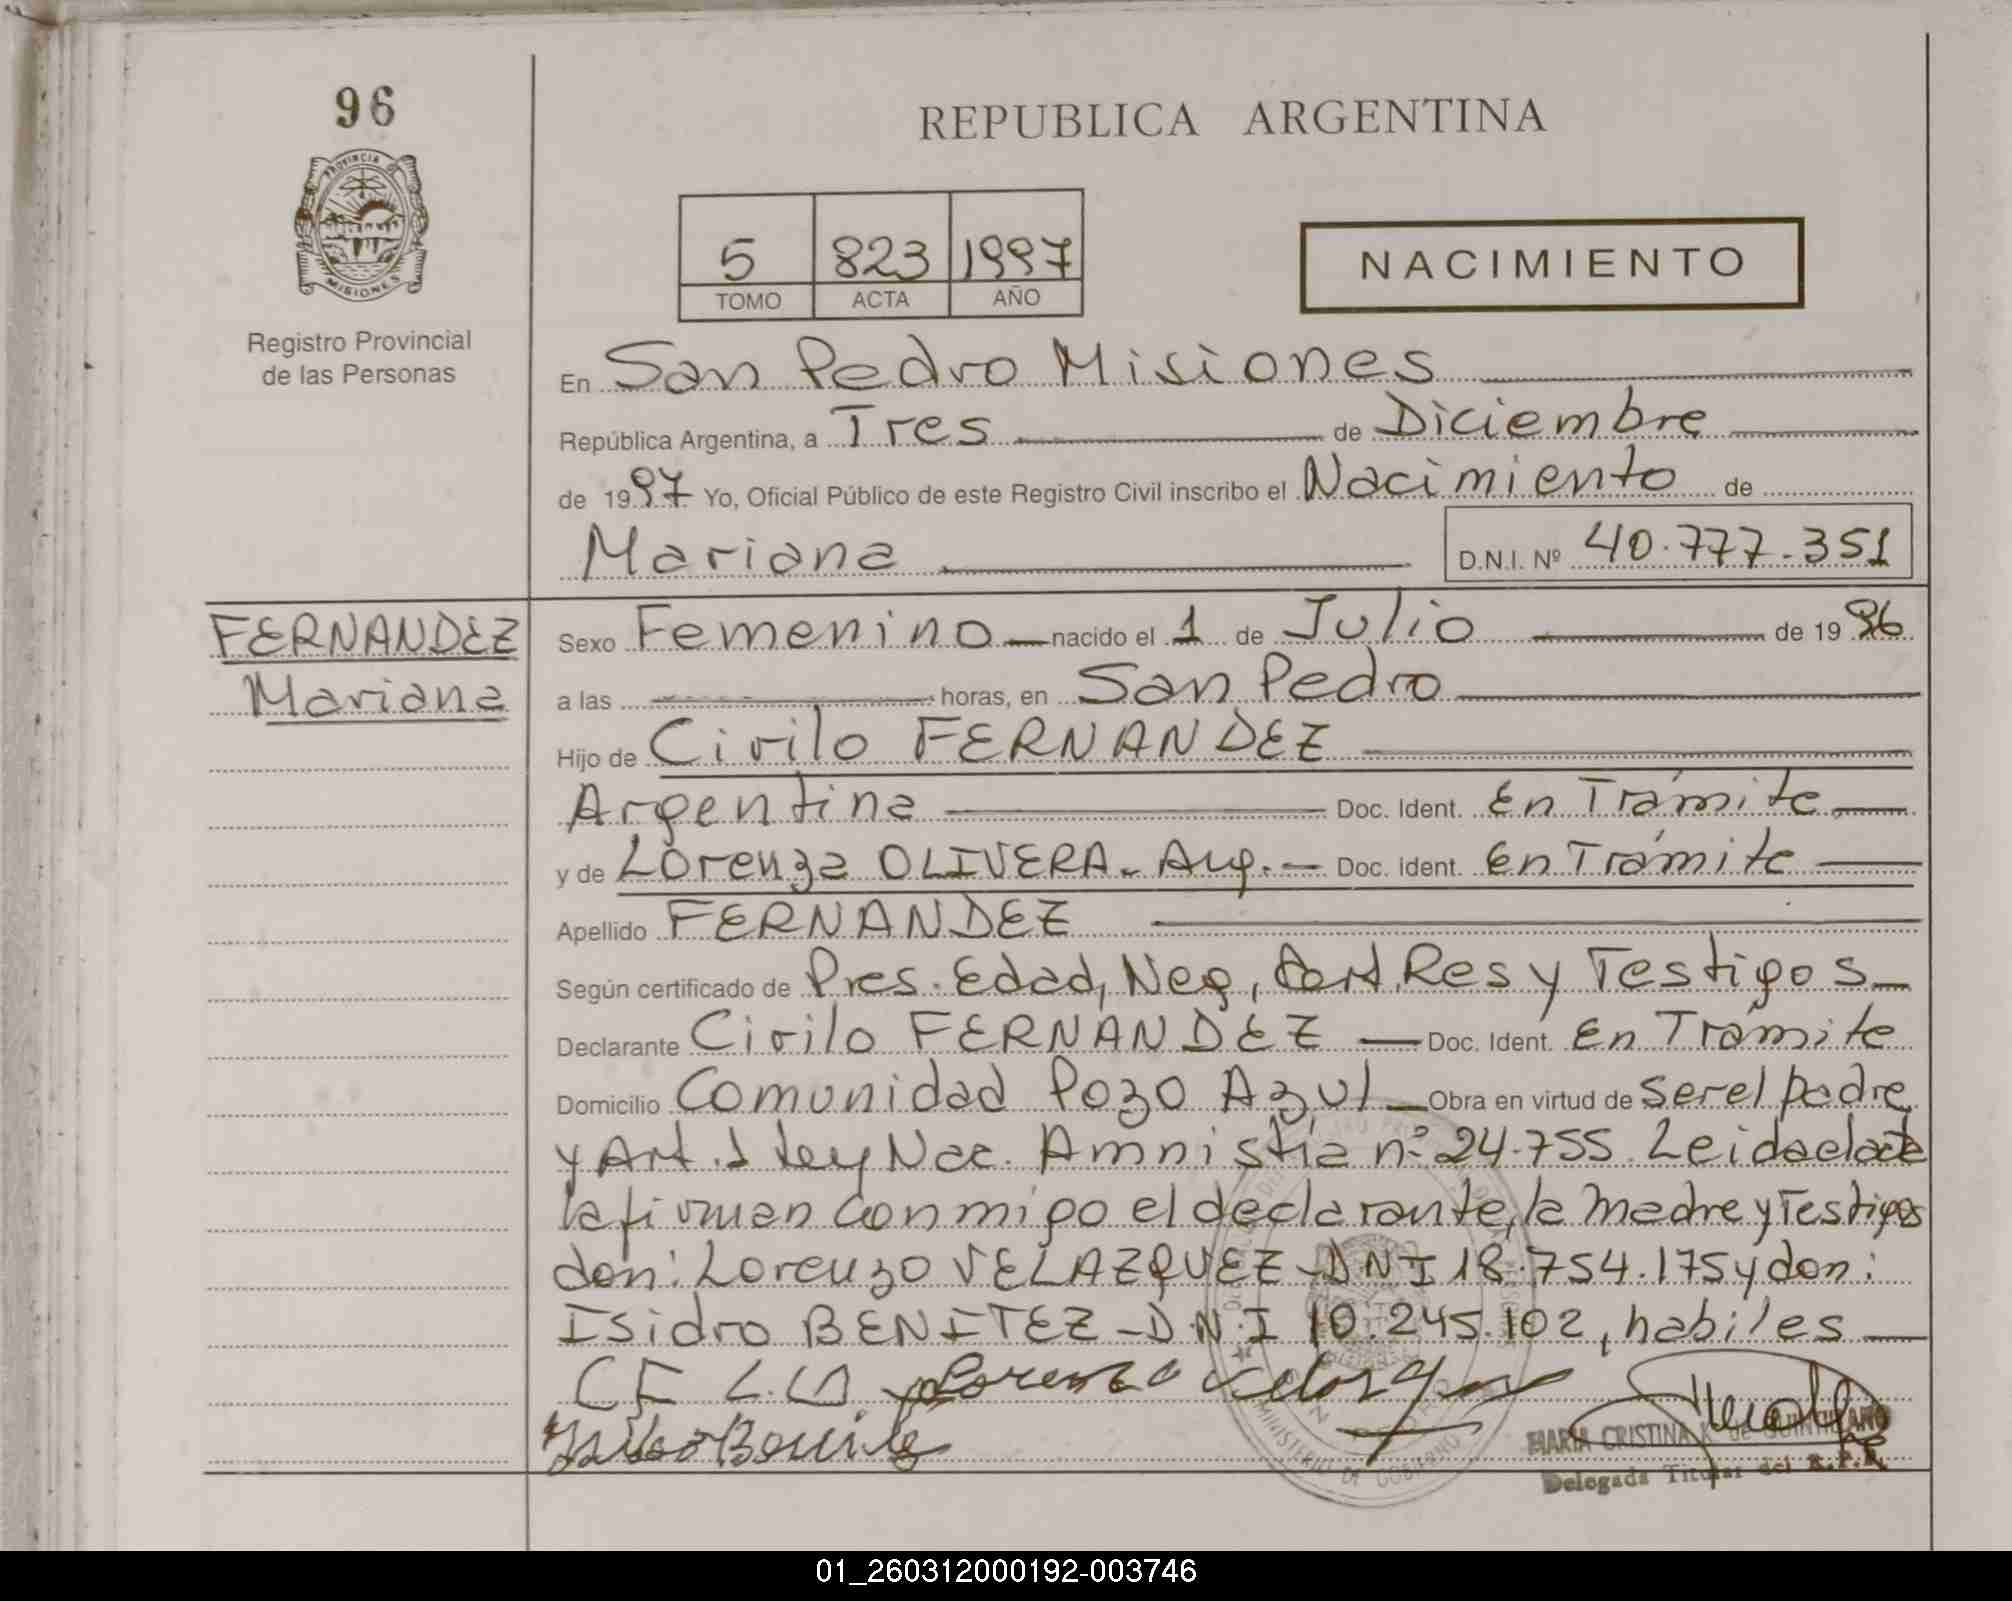 96
REPUBLICA ARGENTINA
PROVINCIA DE
MISIONES
Registro Provincial
de las Personas
5 823 1997
TOMO ACTA AÑO
NACIMIENTO
En San Pedro Misiones
República Argentina, a Tres de Diciembre
de 1997 Yo, Oficial Público de este Registro Civil inscribo el Nacimiento de
Mariana D.N.I. Nº 40.777.351
FERNANDEZ
Mariana
Sexo Femenino nacido el 1 de Julio de 1996
a las horas, en San Pedro
Hijo de Cirilo FERNANDEZ
Argentina Doc. Ident. En Trámite
y de Lorenza OLIVERA. Arg. Doc. Ident. En Trámite
Apellido FERNANDEZ
Según certificado de Pres. Edad, Neg, Cert. Res y Testigos
Declarante Cirilo FERNANDEZ Doc. Ident. En Trámite
Domicilio Comunidad Pozo Azul Obra en virtud de ser el padre
y Art. 1 Ley Nac. Amnistía nº 24.755. Leida el acta
la firman conmigo el declarante, la madre y Testigos
don: Lorenzo VELAZQUEZ - DNI 18.754.175 y don:
Isidro BENITEZ - D.N.I 10.245.102, habiles
CF L.O Lorenzo Velazquez
Isidro Benitez
MINISTERIO DE GOBIERNO
MARIA CRISTINA K. de QUINTILIANO
Delegada Titular del R.P.P.
01_260312000192-003746